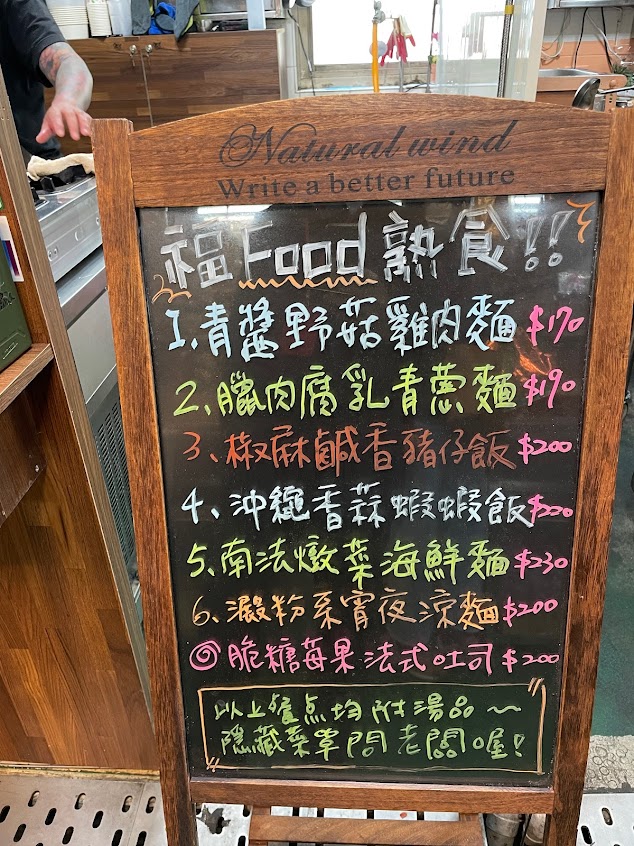 Natural wind
Write a better future
福Food熟食!!
1、青醬野菇雞肉麵 $170
2、臘肉腐乳青蔥麵 $190
3、椒麻鹹香豬仔飯 $200
4、沖繩香蒜蝦蝦飯 $220
5、南法燉菜海鮮麵 $230
6、澱粉系宵夜涼麵 $200
脆糖莓果法式吐司 $200
以上餐点均附湯品～
隱藏菜單問老闆喔!